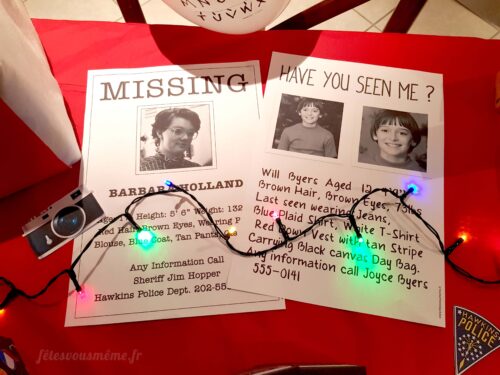 MNOP
TUVW
MISSING
BARBARA HOLLAND
Height: 5' 6" Weight: 132
Red Hair, Brown Eyes, Wearing
Blouse, Blue Coat, Tan Pants
Any Information Call
Sheriff Jim Hopper
Hawkins Police Dept. 202-55
HAVE YOU SEEN ME ?
Will Byers Aged 12 years
Brown Hair, Brown Eyes, 73lbs
Last seen wearing Jeans,
Blue Plaid Shirt, White T-Shirt
Red Down Vest with tan Stripe
Carrying Black canvas Day Bag.
Any information call Joyce Byers
555-0141
HAWKINS
POLICE
fêtesvousmême.fr